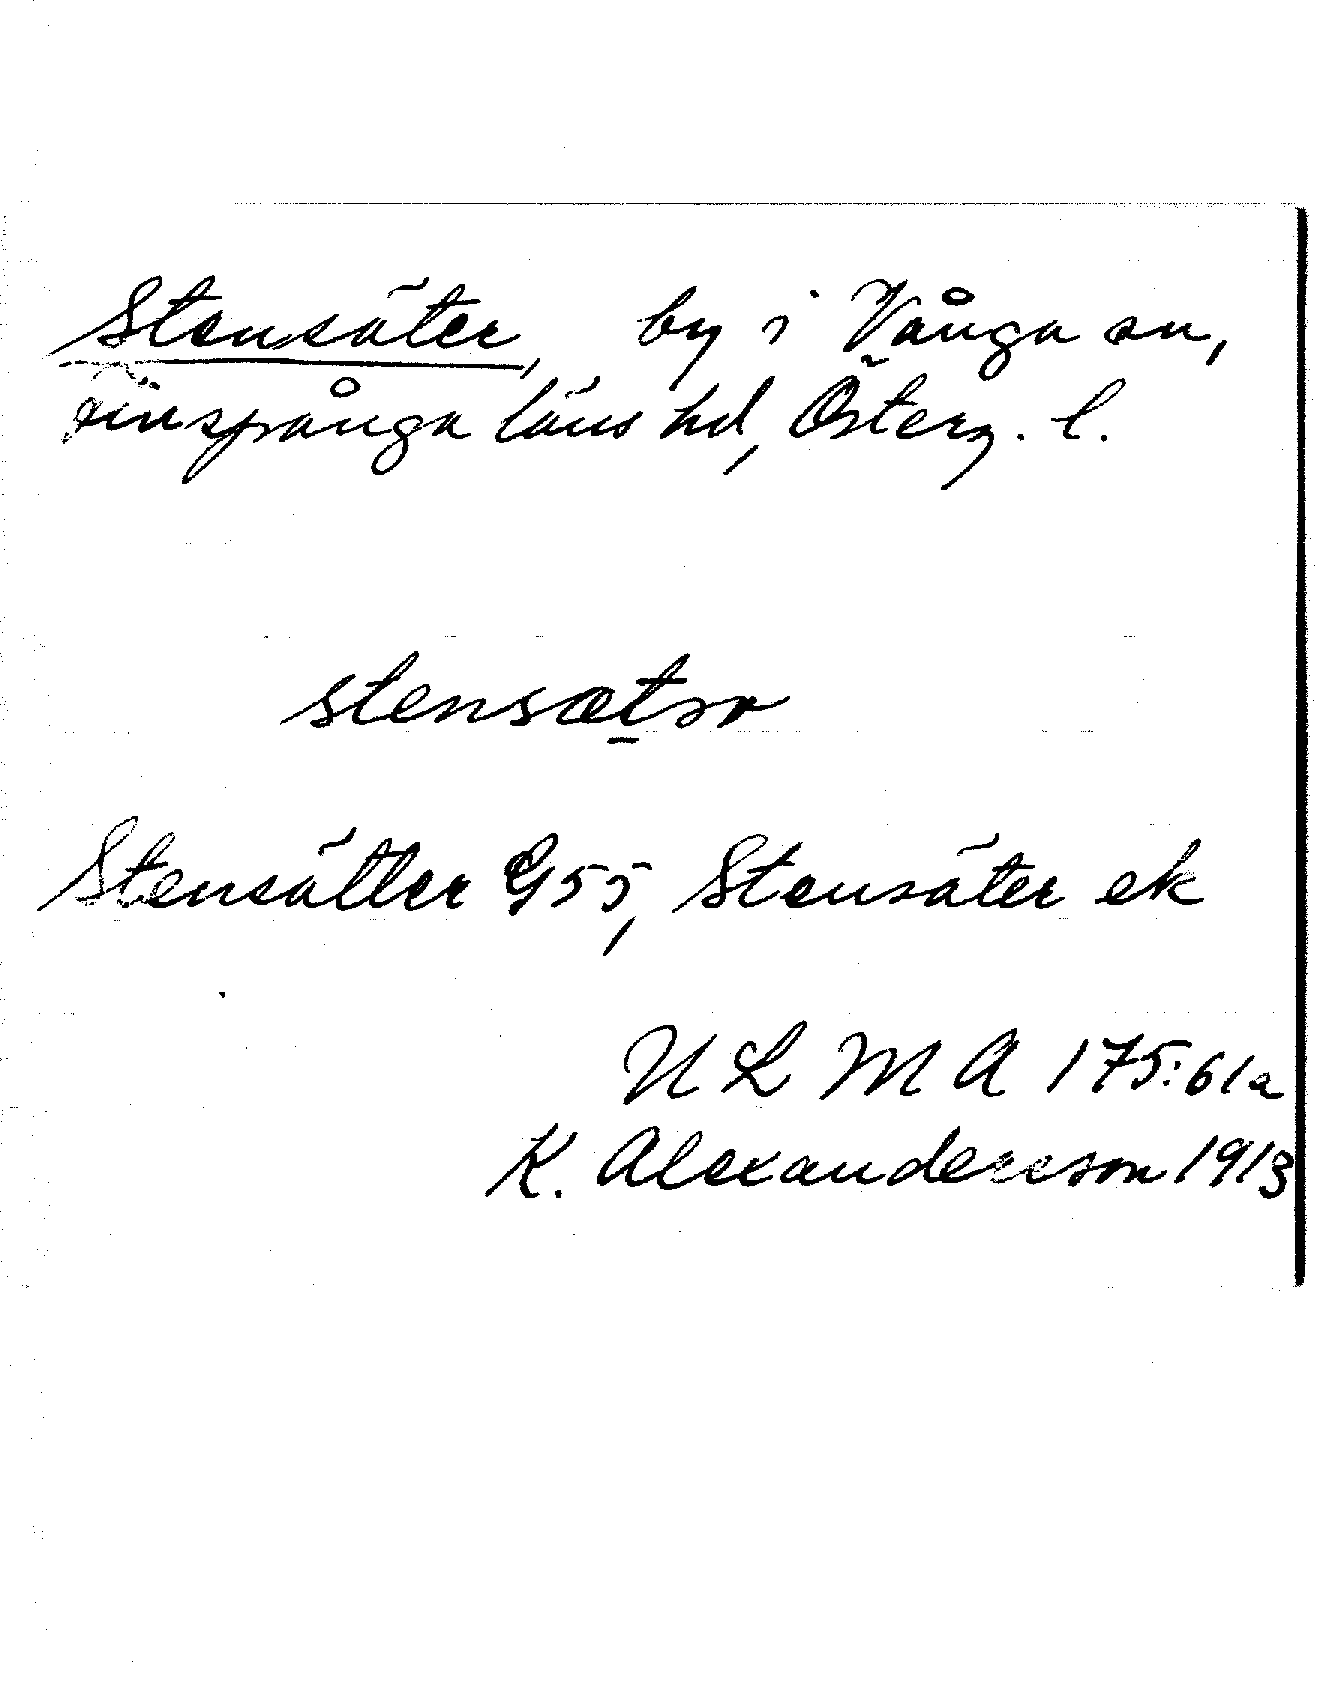 Stensäter, by i Vånga sn,
Finspånga läns hd, Österg. l.
stensætər
Stensätter G55, Stensäter ek
ULMA 175:61a
K. Alexandersson 1913